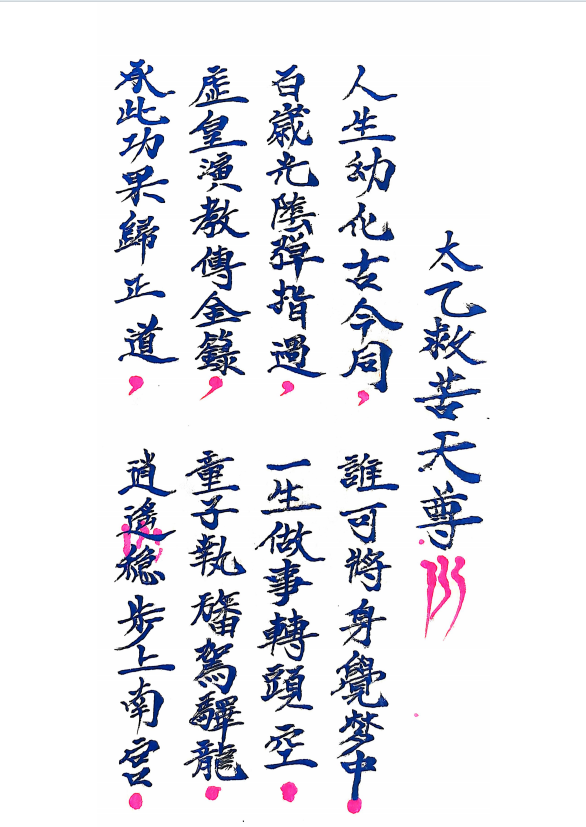 太乙救苦天尊
人生幼化古今同，誰可將身覺梦中。
百歲光陰彈指過，一生做事轉頭空。
虗皇演教傳金籙，童子執磻駕驛龍。
承此功果歸正道，逍遙穏步上南宫。